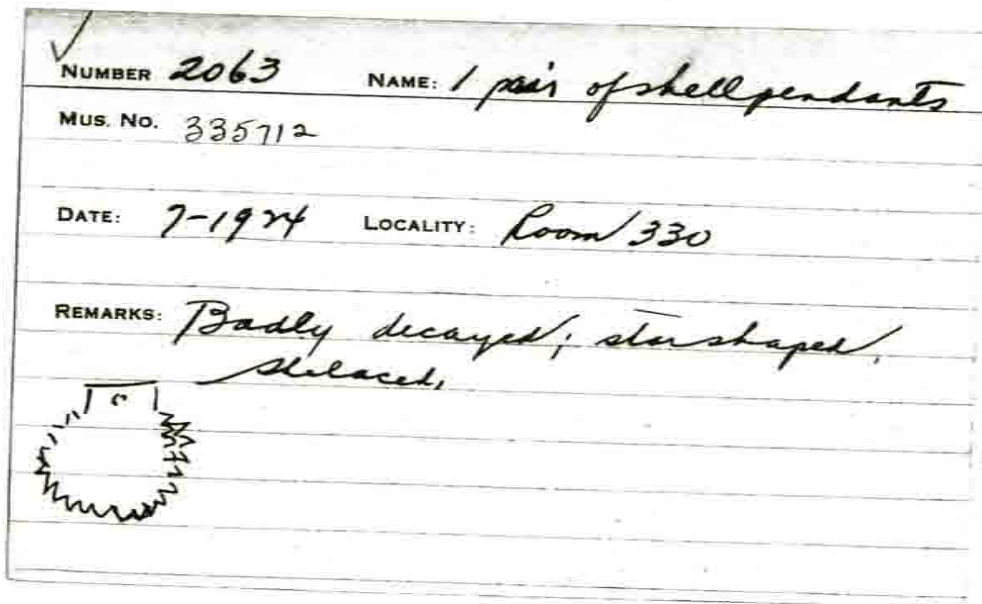 NUMBER 2063 NAME: 1 pair of shell pendants
MUS. NO. 335712
DATE: 7-1924 LOCALITY: Room 330
REMARKS: Badly decayed; star shaped,